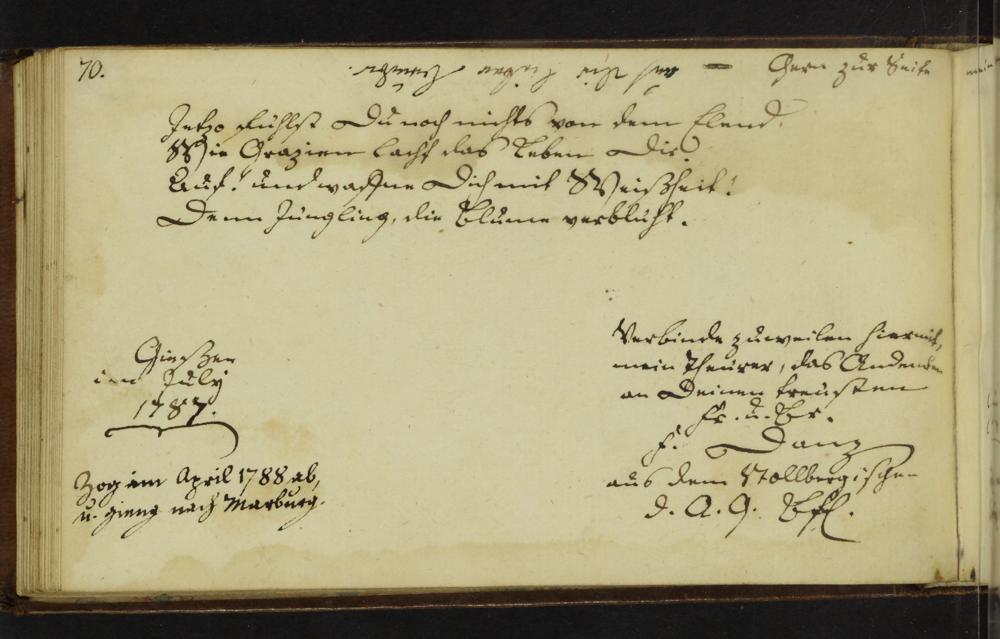 70.
Gern zur Seite
Jetzo fühlst Du noch nichts von dem Elend.
Wie Grazien lacht das Leben Dir.
Auf! und waffne Dich mit Weißheit!
Denn Jüngling, die Blume verblüht.
Gießen
im July
1787.
Zog im April 1788 ab,
u. gieng nach Marburg.
Verbinde zuweilen hiermit,
mein Theurer, das Andenken
an Deinen treusten
Fr. u. Br.
F. Danz
aus dem Stollbergischen
d. A. G.